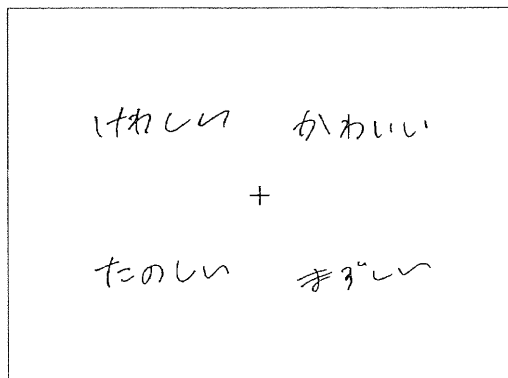 けわしい かわいい
+
たのしい まずしい